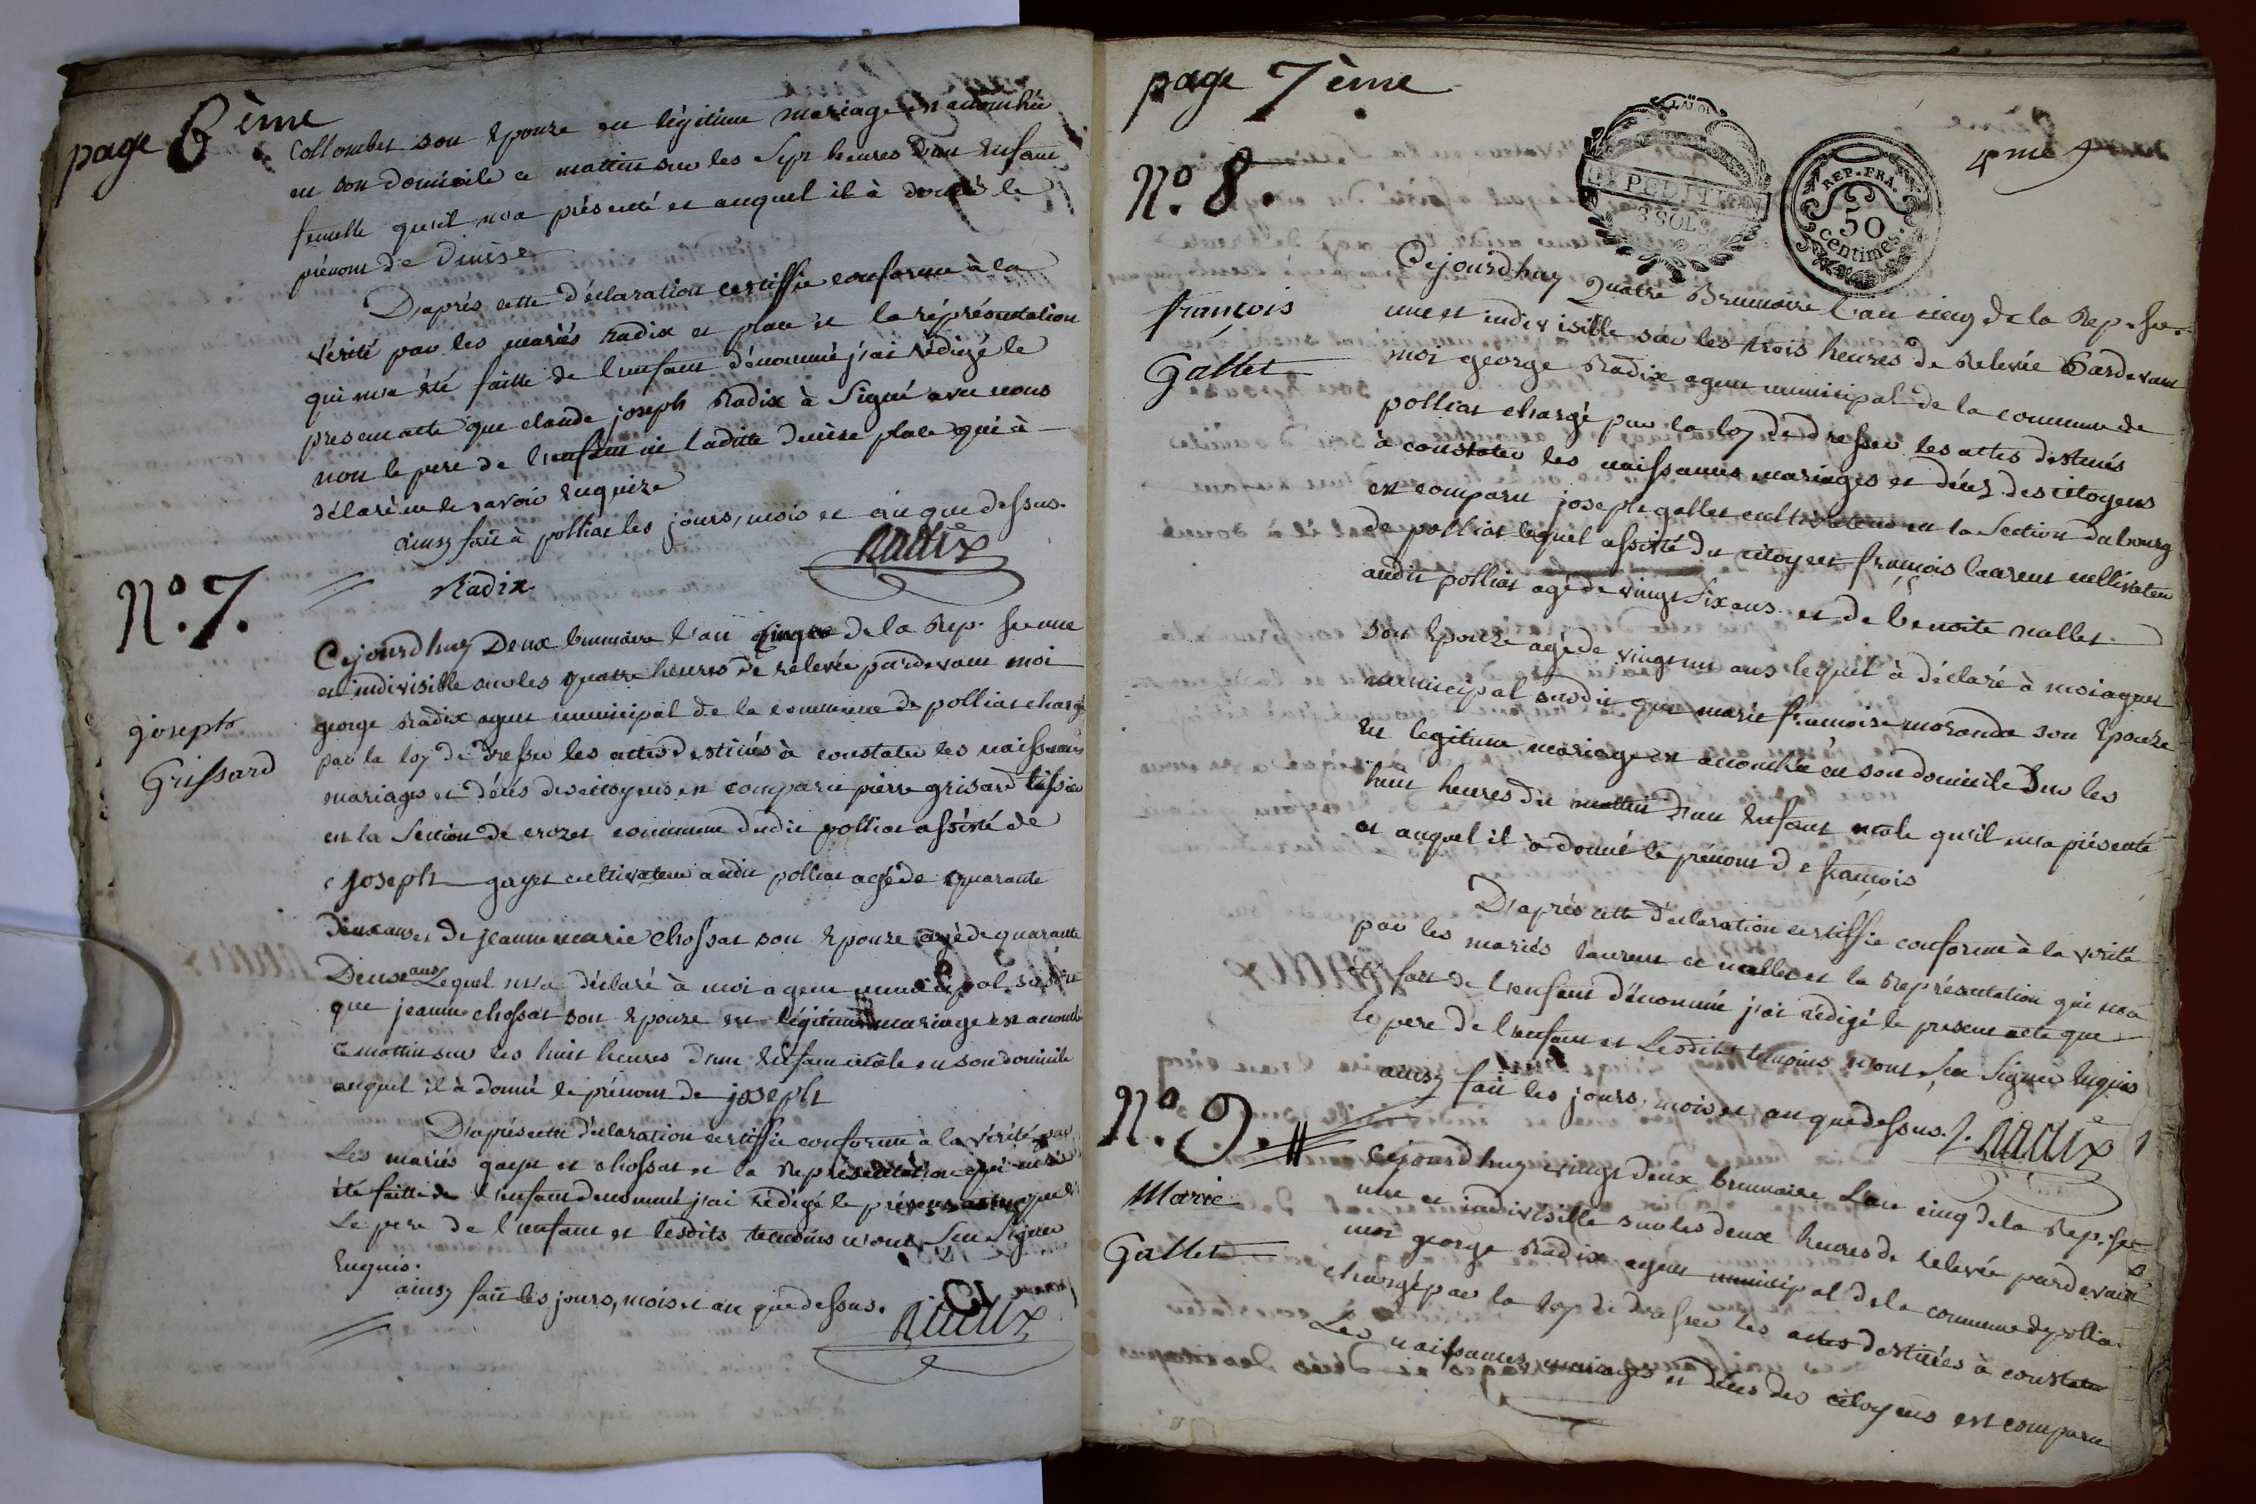 page 6ème
Collombet son Epouze en légitime mariage est accouchée
en son domicile ce mattin sur les Sept heures d'un Enfant
femelle qu'il m'a présenté et auquel il à donné le
prénom de Denise
D'après cette déclaration certiffiée conforme à la
vérité par les mariés Radix et place et la réprésentation
qui m'a été faitte de l'enfant dénommé j'ai rédigé le
present acte que claude joseph Radix à Signé avec nous
non le pere de l'enfant ni laditte denise place qui à
déclaré ne le savoir Enquize
ainsy fait à polliat les jours, mois et an que dessus.
Radix Radix
N°. 7.
joseph
Grissard
Cejourdhuy Deux brumaire l'an Cinq de la Rep. fse une
et indivisible sur les quatre heures de relevée pardevant moi
george Radix agent municipal de la commune de polliat chargé
par la loy de dresser les actes destinés à constater les naissances
mariages et décés des citoyens est comparu pierre grisard tissier
en la Section de crozet commune dudit polliat assisté de
joseph gayet cultivateur audit polliat agé de quarante
deux ans et de jeanne marie chossat son Epouze agée de quarante
Deux ans Lequel m'a déclaré à moi agent municipal susdit
que jeanne chossat son Epouze en légitime mariage est accouchée
ce mattin sur les huit heures d'un Enfant mâle en son domicile
auquel il à donné le prénom de joseph
D'après cette déclaration certiffiée conforme à la vérité par
Les mariés gayet et chossat et la Représentation qui m'a
été faitte de l'enfant denommé j'ai rédigé le présent acte que
Le pere de l'enfant et lesdits temoins n'ont Seu Signer
Enquis.
ainsy fait les jours, mois et an que dessus.
Radix
page 7ème
N°. 8.
LA LOI
EXPEDITION
3 SOLS
REP. FRA.
50
centimes.
4me
françois
Gallet
Cejourdhuy Quatre Brumaire l'an cinq de la Rep. fse.
une et indivisible sur les trois heures de Relevée Pardevant
moi george Radix agent municipal de la commune de
polliat chargé par la loy de dresser les actes destinés
à constater les naissances mariages et décéz des citoyens
est comparu joseph gallet cultivateur en la Section du bourg
de polliat lequel assisté du citoyen françois laurent cultivateur
audit polliat agé de vingt Six ans et de benoite nallet
son Epouze agé de vingt un ans lequel à déclaré à moi agent
municipal susdit que marie françoise morande son Epouze
En legitime mariage est accouchée en son domicile Sur les
huit heures du mattin d'un Enfant mâle qu'il m'a présenté
et auquel il à donné le prénom de françois
D'après cette déclaration certiffiée conforme à la vérité
par les mariés laurent et nallet et la Représentation qui m'a
fait de l'enfant dénommé j'ai rédigé le present acte que
le pere de l'enfant et Lesdits temoins n'ont Seu Signer Enquis
ainsy fait les jours mois et an que dessus. Radix
N°. 9.
Marie
Gallet
Cejourdhuy vingt deux brumaire L'an cinq de la Rep. fse
une et indivisible sur les deux heures de relevée pardevant
moi george Radix agent municipal de la commune de polliat
chargé par la loy de dresser les actes destinés à constater
Les naissances mariages et décés des citoyens est comparu